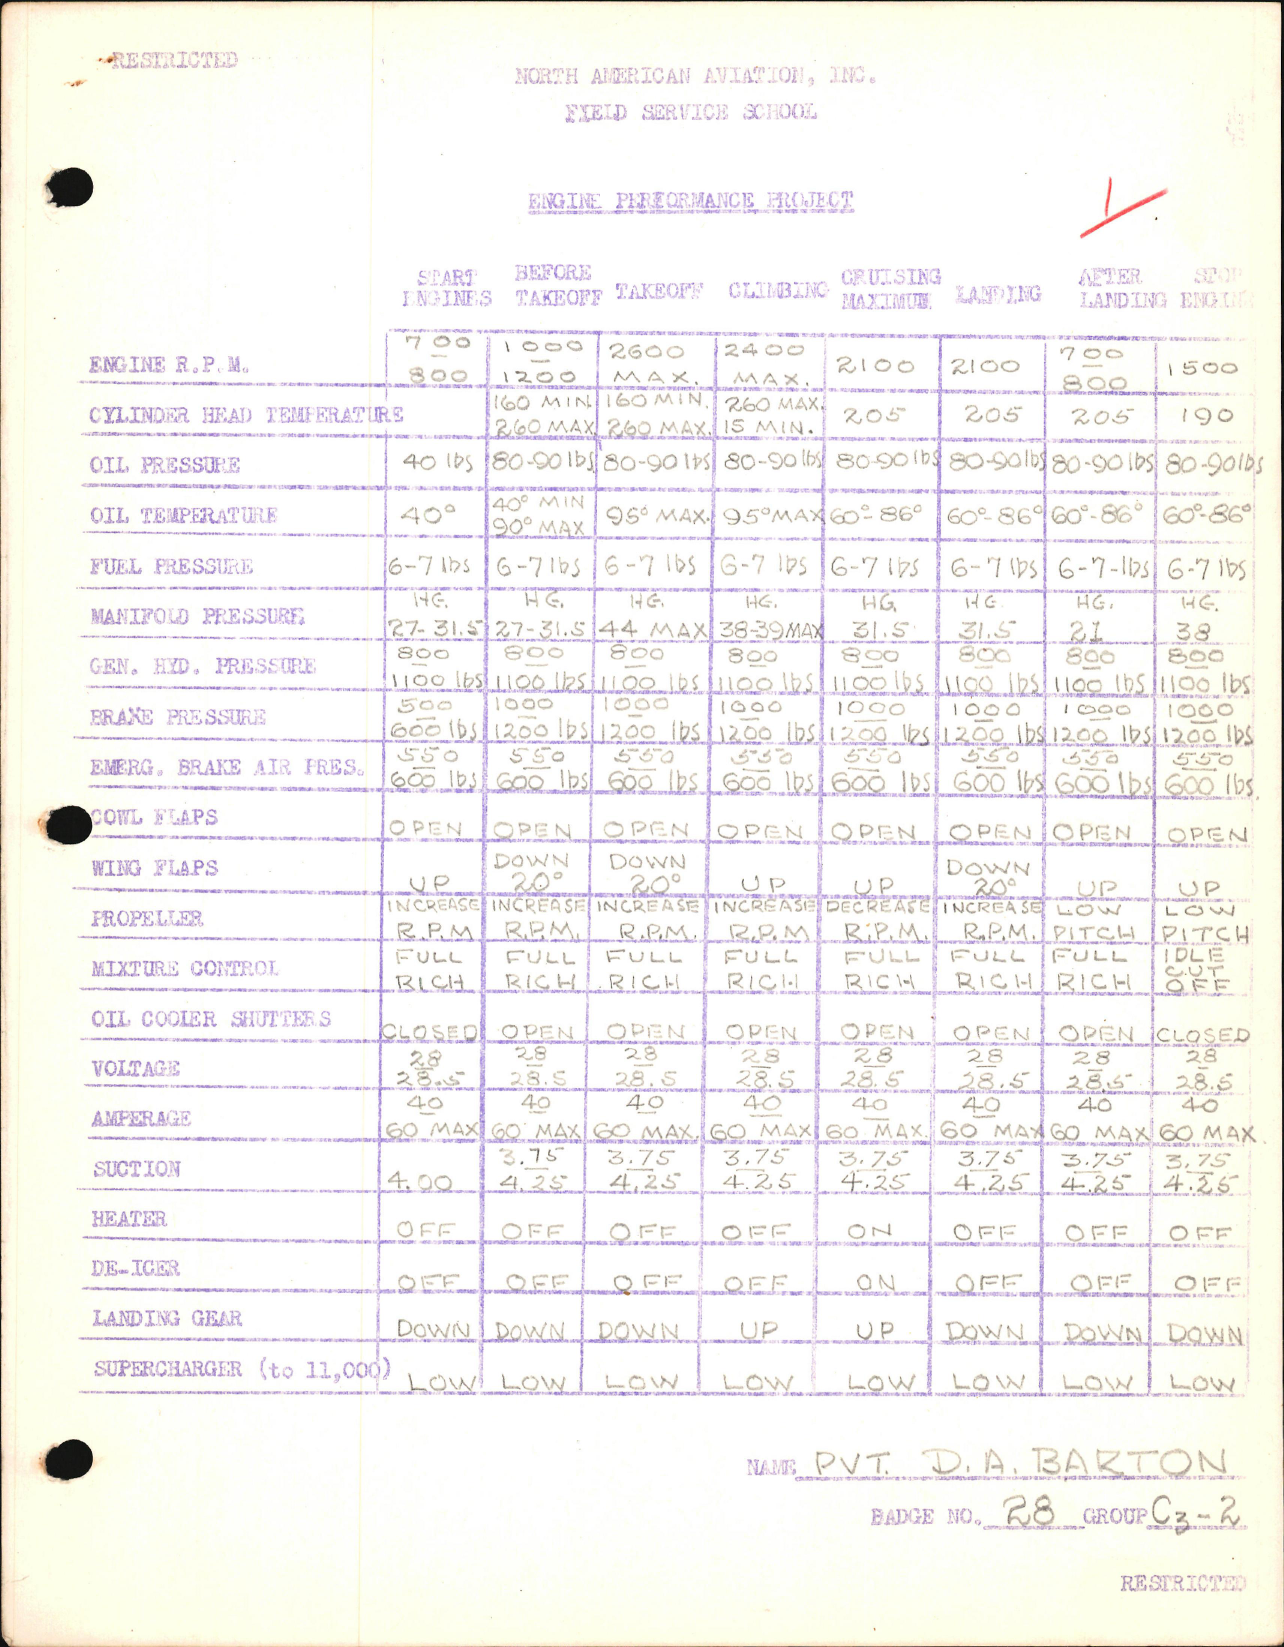 RESTRICTED
NORTH AMERICAN AVIATION, INC.
FIELD SERVICE SCHOOL
ENGINE PERFORMANCE PROJECT
START ENGINES BEFORE TAKEOFF TAKEOFF CLIMBING CRUISING MAXIMUM LANDING AFTER LANDING STOP ENGINE
ENGINE R.P.M. 700 800 1000 1200 2600 MAX. 2400 MAX. 2100 2100 700 800 1500
CYLINDER HEAD TEMPERATURE 160 MIN. 260 MAX. 160 MIN. 260 MAX. 260 MAX. 15 MIN. 205 205 205 190
OIL PRESSURE 40 lbs 80-90 lbs 80-90 lbs 80-90 lbs 80-90 lbs 80-90 lbs 80-90 lbs 80-90 lbs
OIL TEMPERATURE 40° 40° MIN 90° MAX 95° MAX. 95° MAX 60°-86° 60°-86° 60°-86° 60°-86°
FUEL PRESSURE 6-7 lbs 6-7 lbs 6-7 lbs 6-7 lbs 6-7 lbs 6-7 lbs 6-7-lbs 6-7 lbs
MANIFOLD PRESSURE HG. 27-31.5 HG. 27-31.5 HG. 44 MAX HG. 38-39 MAX HG. 31.5 HG 31.5 HG. 21 HG. 38
GEN. HYD. PRESSURE 800 1100 lbs 800 1100 lbs 800 1100 lbs 800 1100 lbs 800 1100 lbs 800 1100 lbs 800 1100 lbs 800 1100 lbs
BRAKE PRESSURE 500 600 lbs 1000 1200 lbs 1000 1200 lbs 1000 1200 lbs 1000 1200 lbs 1000 1200 lbs 1000 1200 lbs 1000 1200 lbs
EMERG. BRAKE AIR PRES. 550 600 lbs 550 600 lbs 550 600 lbs 550 600 lbs 550 600 lbs 550 600 lbs 550 600 lbs 550 600 lbs.
COWL FLAPS OPEN OPEN OPEN OPEN OPEN OPEN OPEN OPEN
WING FLAPS UP DOWN 20° DOWN 20° UP UP DOWN 20° UP UP
PROPELLER INCREASE R.P.M INCREASE R.P.M. INCREASE R.P.M. INCREASE R.P.M DECREASE R.P.M. INCREASE R.P.M. LOW PITCH LOW PITCH
MIXTURE CONTROL FULL RICH FULL RICH FULL RICH FULL RICH FULL RICH FULL RICH FULL RICH IDLE CUT OFF
OIL COOLER SHUTTERS CLOSED OPEN OPEN OPEN OPEN OPEN OPEN CLOSED
VOLTAGE 28 28.5 28 28.5 28 28.5 28 28.5 28 28.5 28 28.5 28 28.5 28 28.5
AMPERAGE 40 60 MAX 40 60 MAX 40 60 MAX. 40 60 MAX 40 60 MAX. 40 60 MAX 40 60 MAX 40 60 MAX.
SUCTION 4.00 3.75 4.25 3.75 4.25 3.75 4.25 3.75 4.25 3.75 4.25 3.75 4.25 3.75 4.25
HEATER OFF OFF OFF OFF ON OFF OFF OFF
DE-ICER OFF OFF OFF OFF ON OFF OFF OFF
LANDING GEAR DOWN DOWN DOWN UP UP DOWN DOWN DOWN
SUPERCHARGER (to 11,000) LOW LOW LOW LOW LOW LOW LOW LOW
NAME PVT. D.A. BARTON
BADGE NO. 28 GROUP C3-2
RESTRICTED